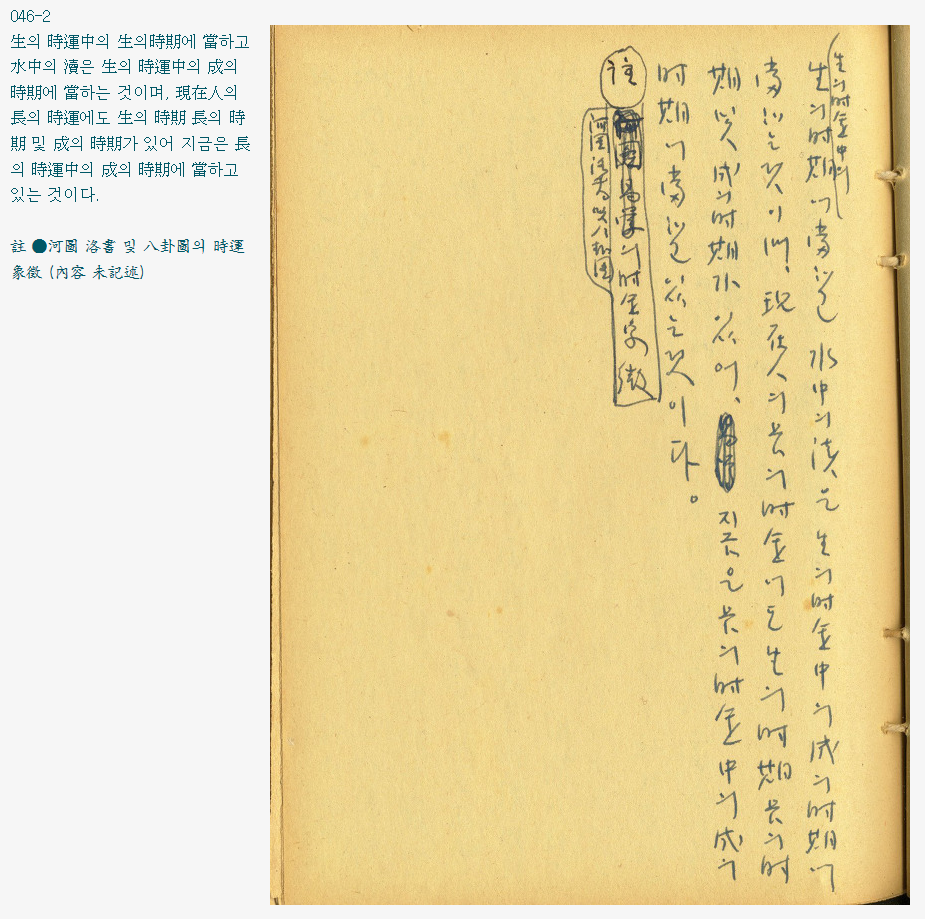 046-2
生의 時運中의 生의時期에 當하고
水中의 瀆은 生의 時運中의 成의
時期에 當하는 것이며, 現在人의
長의 時運에도 生의 時期 長의 時
期 및 成의 時期가 있어 지금은 長
의 時運中의 成의 時期에 當하고
있는 것이다.
註 ●河圖 洛書 및 八卦圖의 時運
象徵 (內容 未記述)
生의时运中의
生의时期에 當하고 水中의 瀆은 生의 时运中의 成의 时期에
當하는 것이며, 現在人의 長의 时运에도 生의 时期 長의 时
期 및 成의 时期가 있어, 지금은 長의 时运中의 成의
时期에 當하고 있는 것이다.
註
易學의 时运象徵
河図洛書 및 八卦図